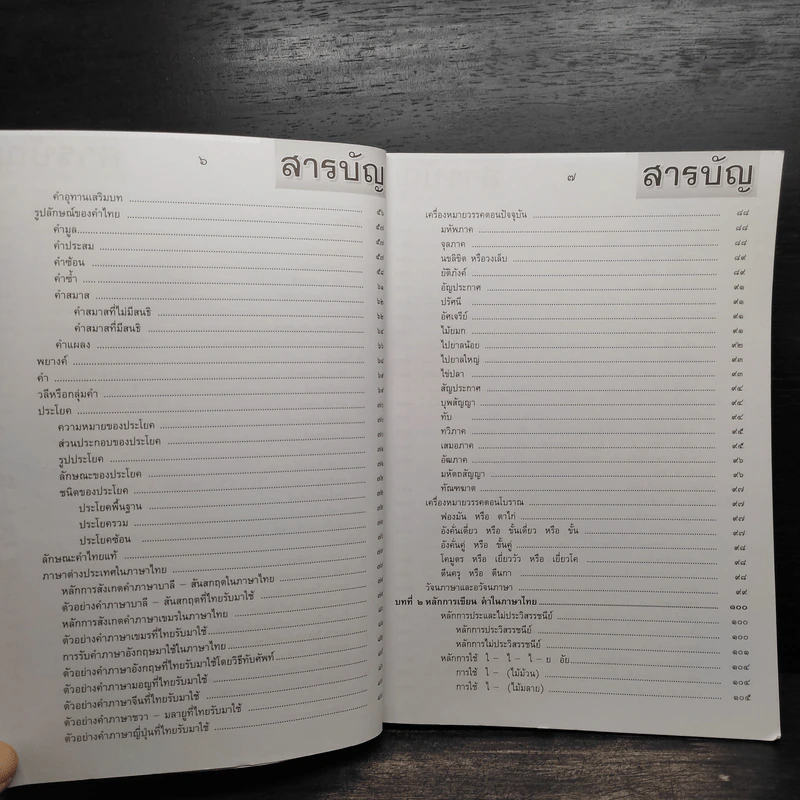 ๖
สารบัญ
คำอุทานเสริมบท
รูปลักษณ์ของคำไทย
คำมูล
คำประสม
คำซ้อน
คำซ้ำ
คำสมาส
คำสมาสที่ไม่มีสนธิ
คำสมาสที่มีสนธิ
คำแผลง
พยางค์
คำ
วลีหรือกลุ่มคำ
ประโยค
ความหมายของประโยค
ส่วนประกอบของประโยค
รูปประโยค
ลักษณะของประโยค
ชนิดของประโยค
ประโยคพื้นฐาน
ประโยครวม
ประโยคซ้อน
ลักษณะคำไทยแท้
ภาษาต่างประเทศในภาษาไทย
หลักการสังเกตคำภาษาบาลี – สันสกฤตในภาษาไทย
ตัวอย่างคำภาษาบาลี – สันสกฤตที่ไทยรับมาใช้
หลักการสังเกตคำภาษาเขมรในภาษาไทย
ตัวอย่างคำภาษาเขมรที่ไทยรับมาใช้
การรับคำภาษาอังกฤษมาใช้ในภาษาไทย
ตัวอย่างคำภาษาอังกฤษที่ไทยรับมาใช้โดยวิธีทับศัพท์
ตัวอย่างคำภาษามอญที่ไทยรับมาใช้
ตัวอย่างคำภาษาจีนที่ไทยรับมาใช้
ตัวอย่างคำภาษาชวา – มลายูที่ไทยรับมาใช้
ตัวอย่างคำภาษาญี่ปุ่นที่ไทยรับมาใช้
๗
สารบัญ
เครื่องหมายวรรคตอนปัจจุบัน ๘๘
มหัพภาค ๘๘
จุลภาค ๘๘
นขลิขิต หรือวงเล็บ ๘๙
ยัติภังค์ ๘๙
อัญประกาศ ๙๑
ปรัศนี ๙๑
อัศเจรีย์ ๙๑
ไม้ยมก ๙๑
ไปยาลน้อย ๙๒
ไปยาลใหญ่ ๙๓
ไข่ปลา ๙๓
สัญประกาศ ๙๔
บุพสัญญา ๙๔
ทับ ๙๔
ทวิภาค ๙๕
เสมอภาค ๙๕
อัฒภาค ๙๖
มหัตถสัญญา ๙๖
ทัณฑฆาต ๙๗
เครื่องหมายวรรคตอนโบราณ ๙๗
ฟองมัน หรือ ตาไก่ ๙๗
อังคั่นเดี่ยว หรือ ขั้นเดี่ยว หรือ ขั้น ๙๗
อังคั่นคู่ หรือ ขั้นคู่ ๙๘
โคมูตร หรือ เยี่ยววัว หรือ เยี่ยวโค ๙๘
ตีนครุ หรือ ตีนกา ๙๘
วัจนภาษาและอวัจนภาษา ๙๙
บทที่ ๒ หลักการเขียน คำในภาษาไทย ๑๐๐
หลักการประและไม่ประวิสรรชนีย์ ๑๐๐
หลักการประวิสรรชนีย์ ๑๐๐
หลักการไม่ประวิสรรชนีย์ ๑๐๑
หลักการใช้ ใ – ไ – ไ – ย อัย ๑๐๔
การใช้ ใ – (ไม้ม้วน) ๑๐๔
การใช้ ไ – (ไม้มลาย) ๑๐๕